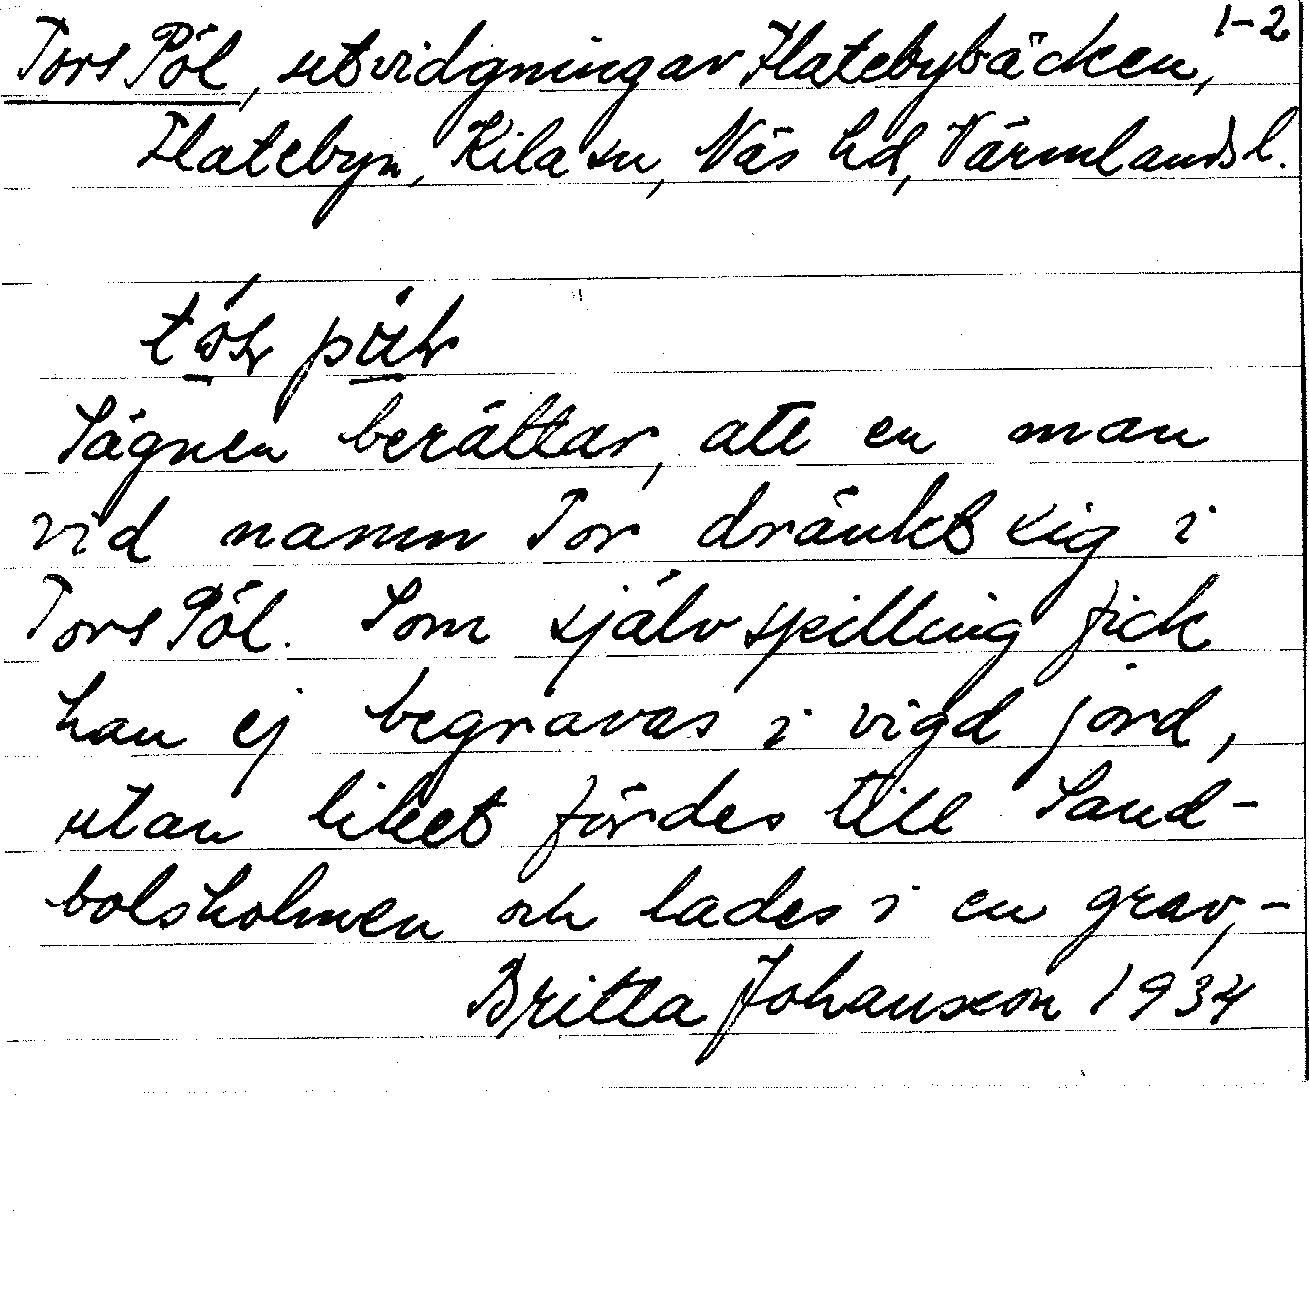 1-2
Tors Pöl, utvidgning av Flatebybäcken,
Flatebyn, Kila sn, Näs hd, Värmlands l.
Sägnen berättar, att en man
vid namn Tor dränkt sig i
Tors Pöl. Som självspilling fick
han ej begravas i vigd jord,
utan liket fördes till Sand-
bolsholmen och lades i en grav, -
Britta Johansson 1934